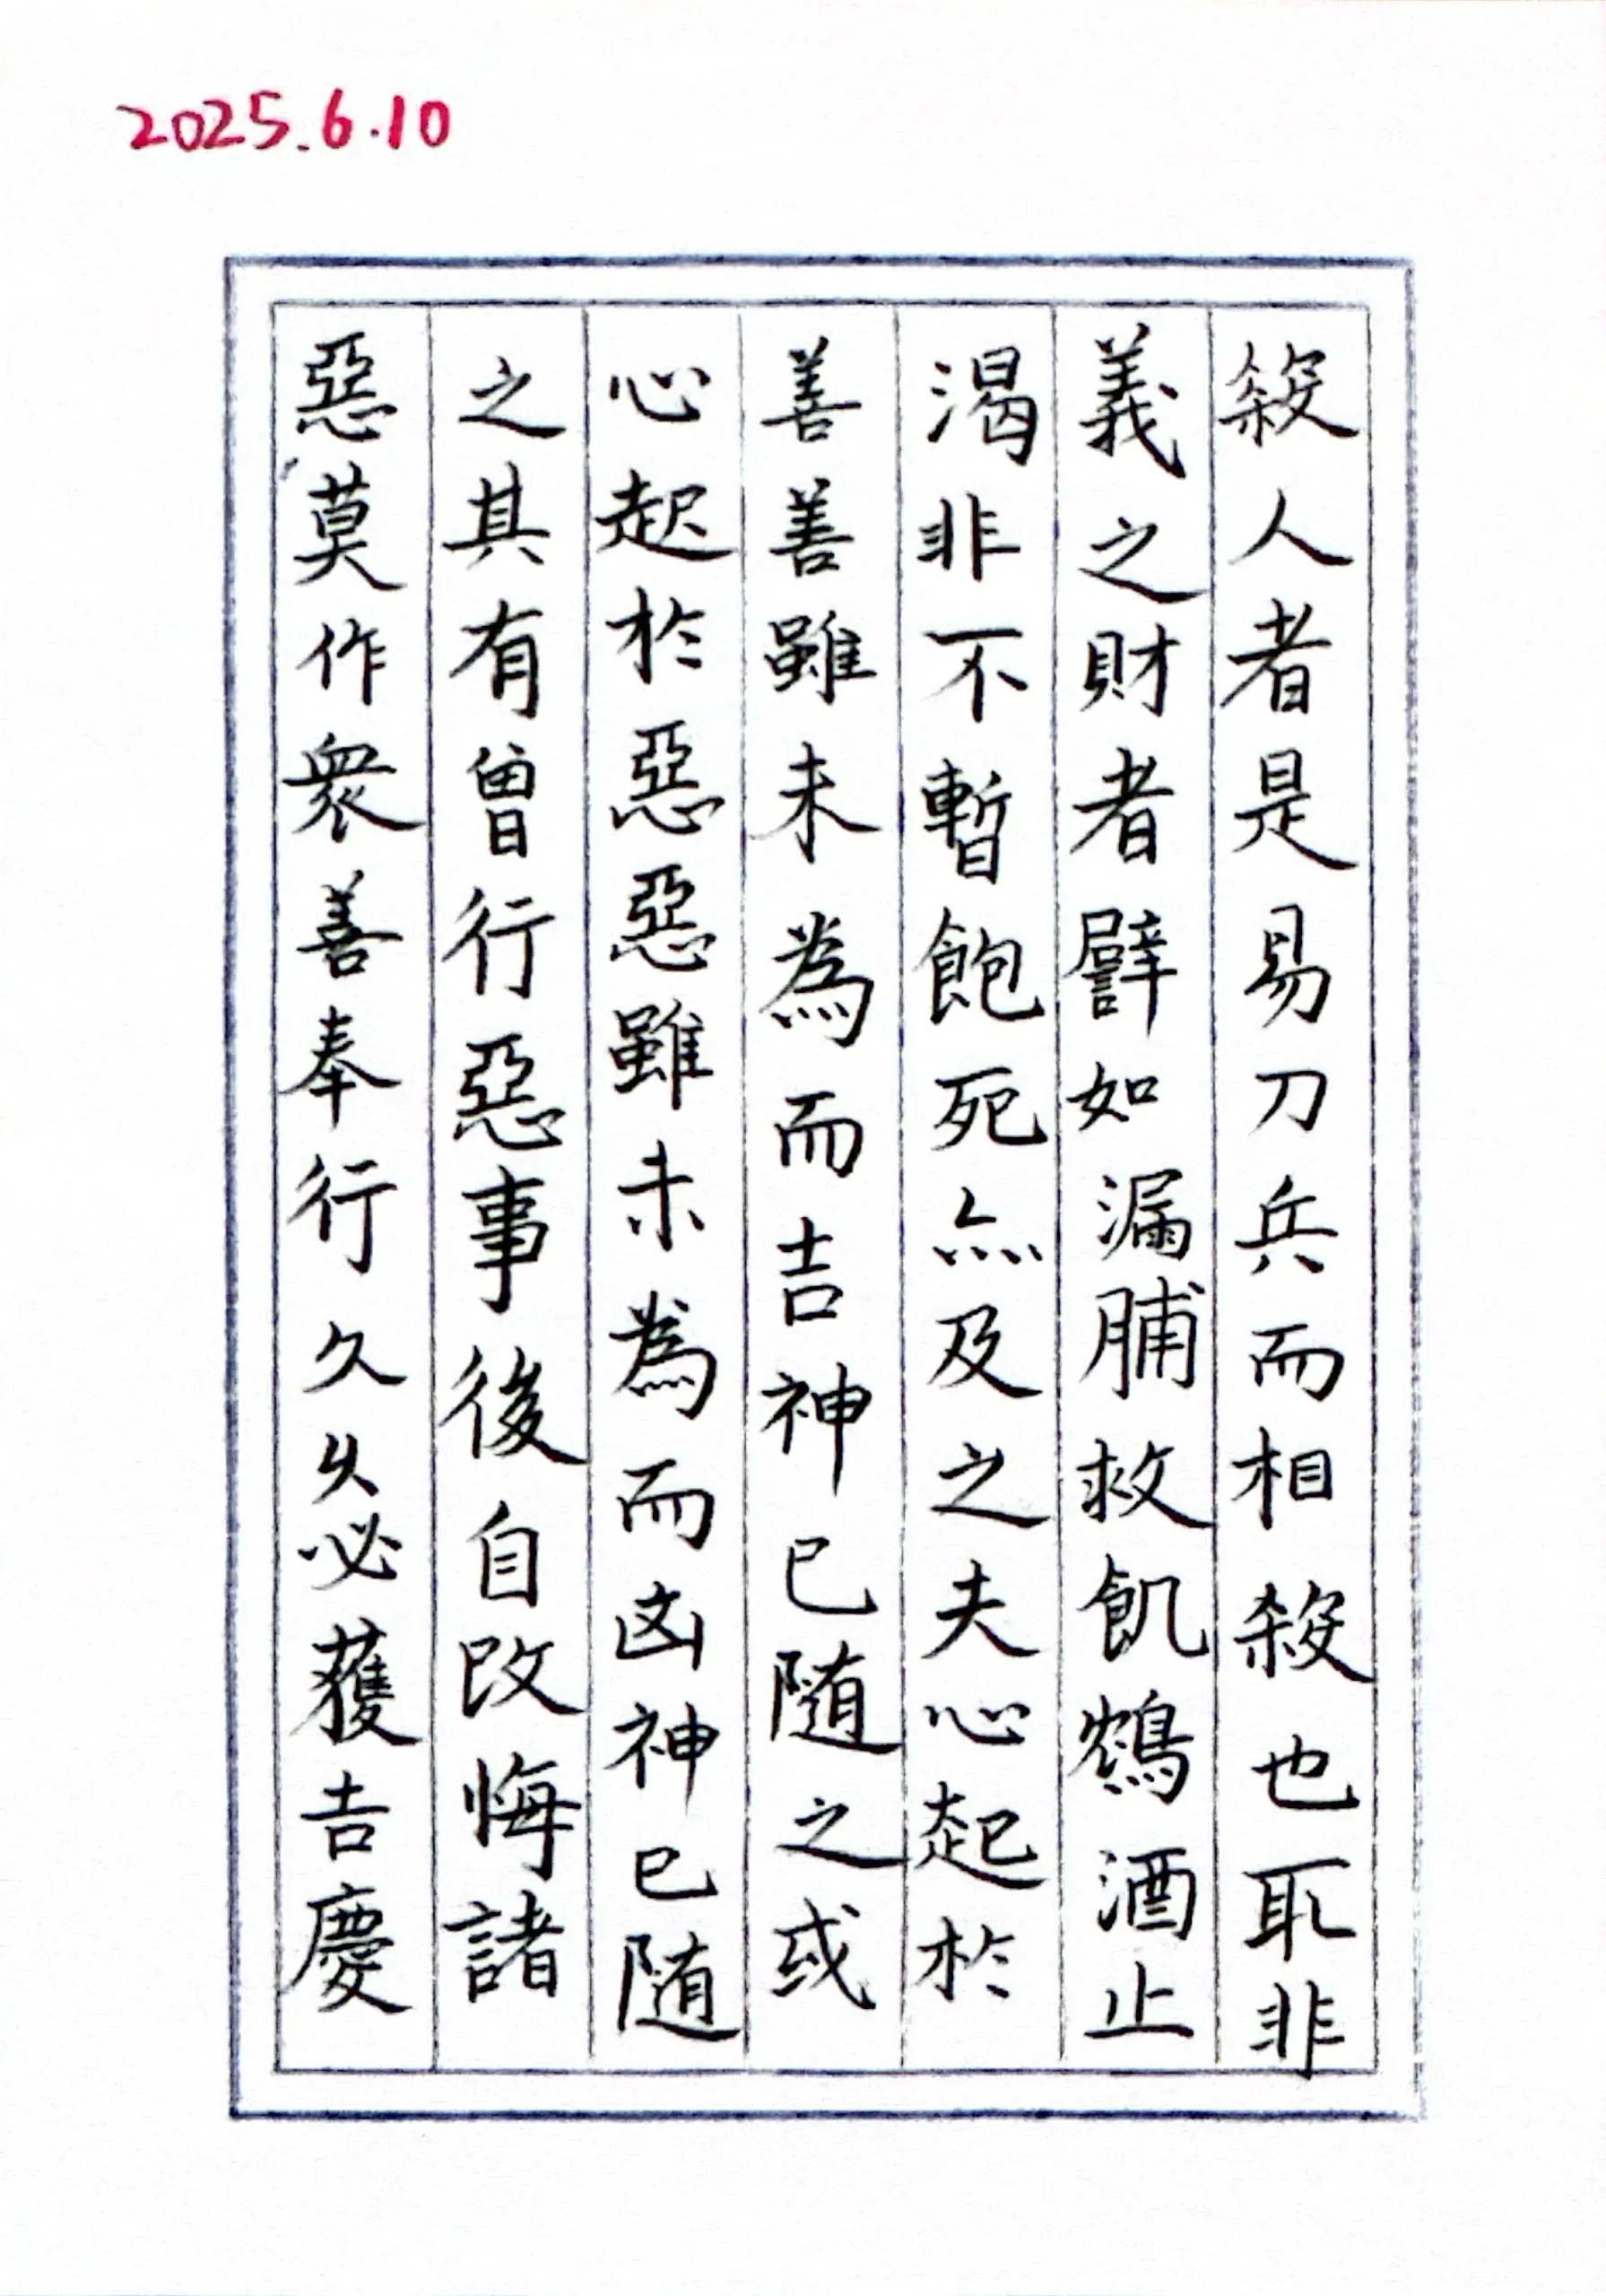 2025.6.10
殺人者是易刀兵而相殺也取非
義之財者譬如漏脯救飢鴆酒止
渴非不暫飽死亦及之夫心起於
善善雖未為而吉神已随之或
心起於惡惡雖未為而凶神已随
之其有曾行惡事後自改悔諸
惡莫作衆善奉行久久必獲吉慶